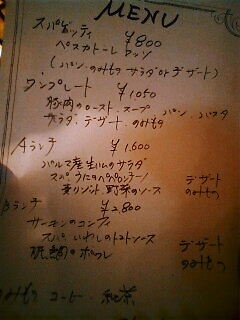 MENU
スパゲッティ ¥800
ペスカトーレ ロッソ
(パン のみもの サラダ or デザート)
ワンプレート ¥1,050
豚肉のロースト、スープ パン、パスタ
サラダ、デザート、のみもの
Aランチ ¥1,600
パルマ産生ハムのサラダ
スパ うにのペペロンチーノ デザート
リゾット 野菜のソース のみもの
Bランチ ¥2,800
サーモンのコンフィ
スパ いわしのトマトソース デザート
鯛のポワレ のみもの
のみもの コーヒー、紅茶